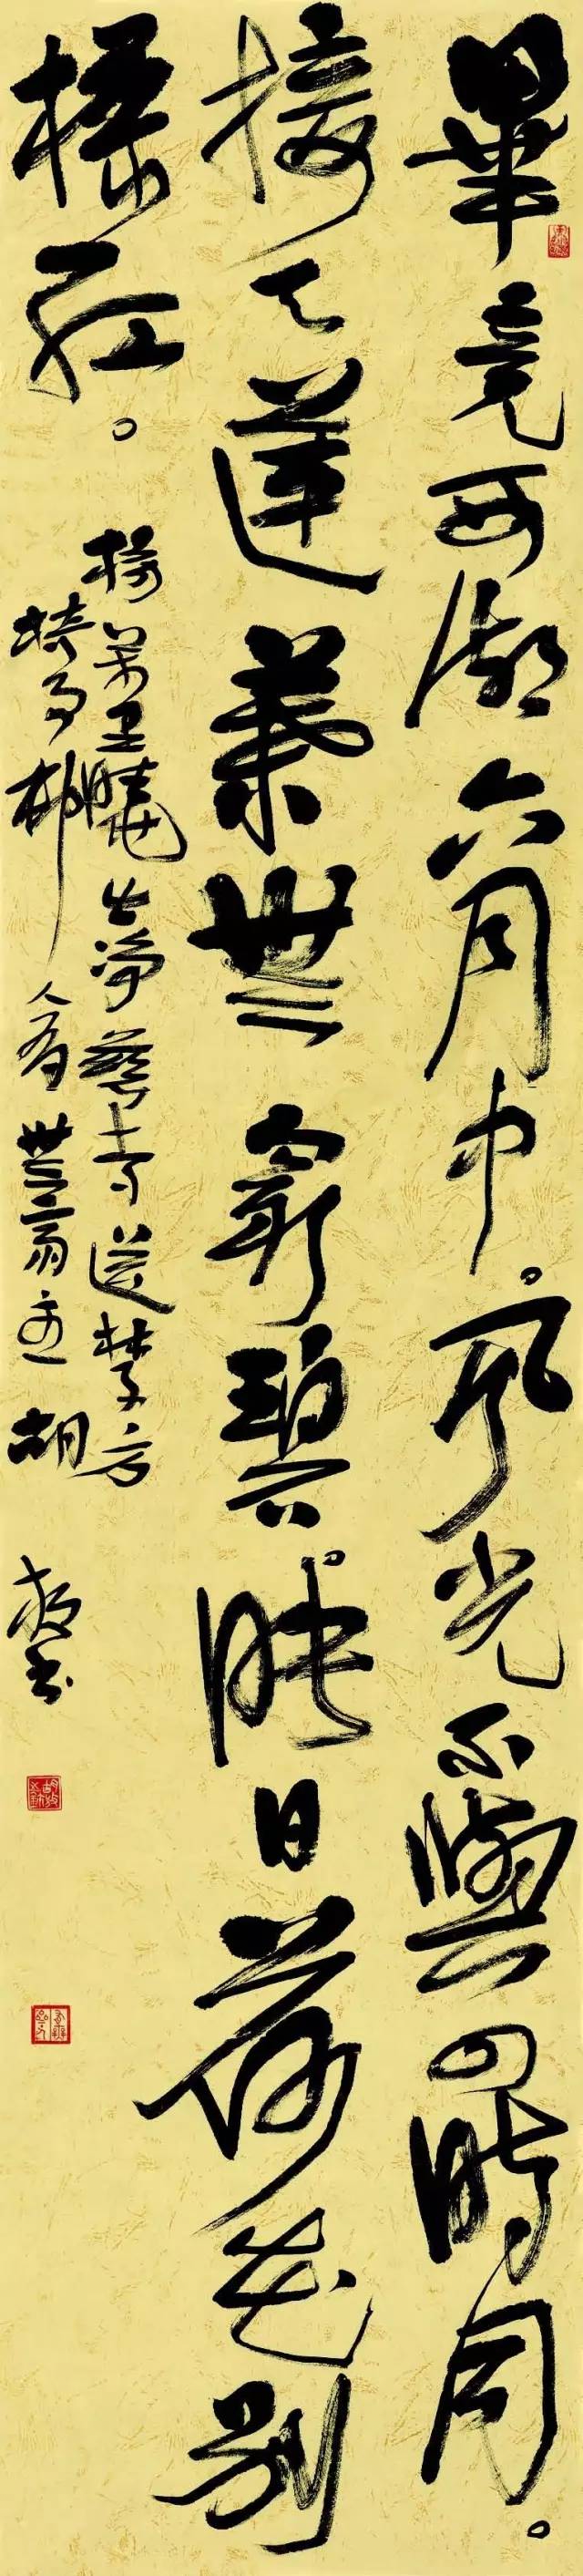 畢竟西湖六月中。風光不與四時同。
接天蓮葉無窮碧。映日荷花別
樣紅。
楊萬里曉出淨慈寺送林子方
胡
書